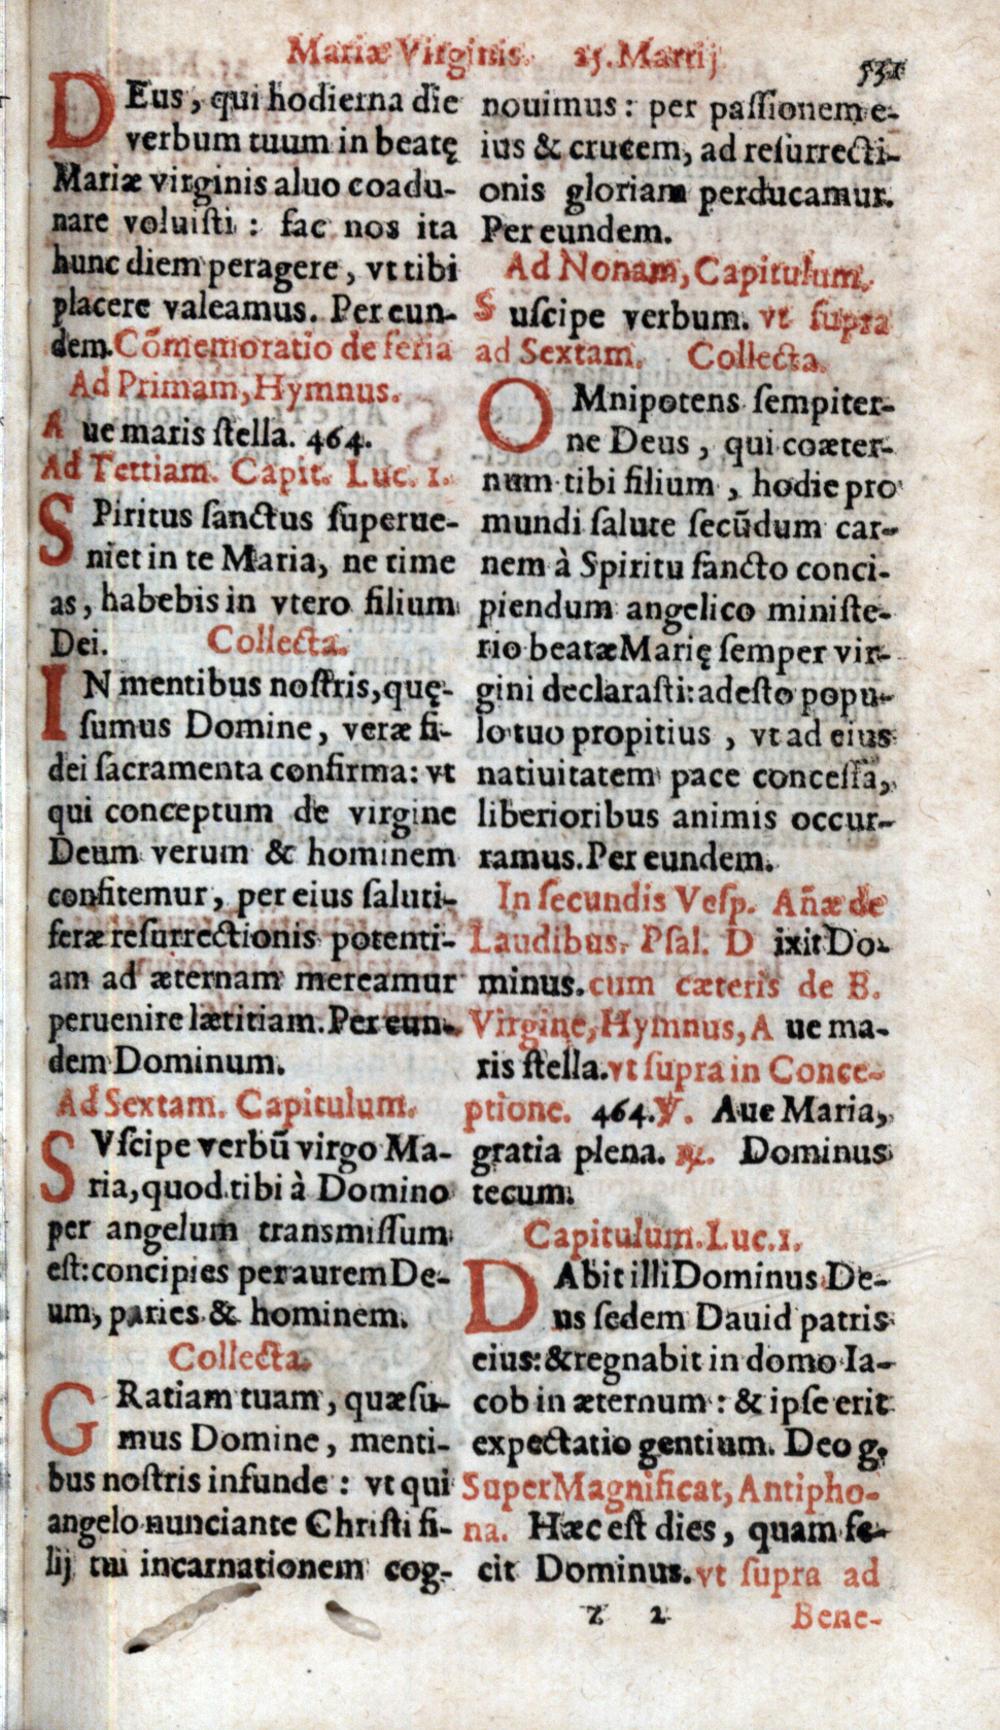 Mariæ Virginis. 25. Martij
531
DEus, qui hodierna die
verbum tuum in beatę
Mariæ virginis aluo coadu-
nare voluisti : fac nos ita
hunc diem peragere, vt tibi
placere valeamus. Per eun-
dem. Cōmemoratio de feria
Ad Primam, Hymnus.
Aue maris stella. 464.
Ad Tertiam. Capit. Luc. 1.
SPiritus sanctus superue-
niet in te Maria, ne time
as, habebis in vtero filium
Dei. Collecta.
IN mentibus nostris, quę-
sumus Domine, veræ fi-
dei sacramenta confirma: vt
qui conceptum de virgine
Deum verum & hominem
confitemur, per eius saluti-
feræ resurrectionis potenti-
am ad æternam mereamur
peruenire lætitiam. Per eun-
dem Dominum.
Ad Sextam. Capitulum.
SVscipe verbū virgo Ma-
ria, quod tibi à Domino
per angelum transmissum
est: concipies per aurem De-
um, paries & hominem.
Collecta.
GRatiam tuam, quæsu-
mus Domine, menti-
bus nostris infunde : vt qui
angelo nunciante Christi fi-
lij tui incarnationem cog-
nouimus : per passionem e-
ius & crucem, ad resurrecti-
onis gloriam perducamur.
Per eundem.
Ad Nonam, Capitulum.
Suscipe verbum. vt supra
ad Sextam. Collecta.
OMnipotens sempiter-
ne Deus, qui coæter-
num tibi filium, hodie pro
mundi salute secūdum car-
nem à Spiritu sancto conci-
piendum angelico ministe-
rio beatæ Marię semper vir-
gini declarasti: adesto popu-
lo tuo propitius, vt ad eius
natiuitatem pace concessa,
liberioribus animis occur-
ramus. Per eundem.
In secundis Vesp. Añæ de
Laudibus. Psal. Dixit Do-
minus. cum cæteris de B.
Virgine, Hymnus, Aue ma-
ris stella. vt supra in Conce-
ptione. 464. ℣. Aue Maria,
gratia plena. ℟. Dominus
tecum.
Capitulum. Luc. 1.
DAbit illi Dominus De-
us sedem Dauid patris
eius: & regnabit in domo Ia-
cob in æternum : & ipse erit
expectatio gentium. Deo g.
Super Magnificat, Antipho-
na. Hæc est dies, quam fe-
cit Dominus. vt supra ad
Z 2
Bene-